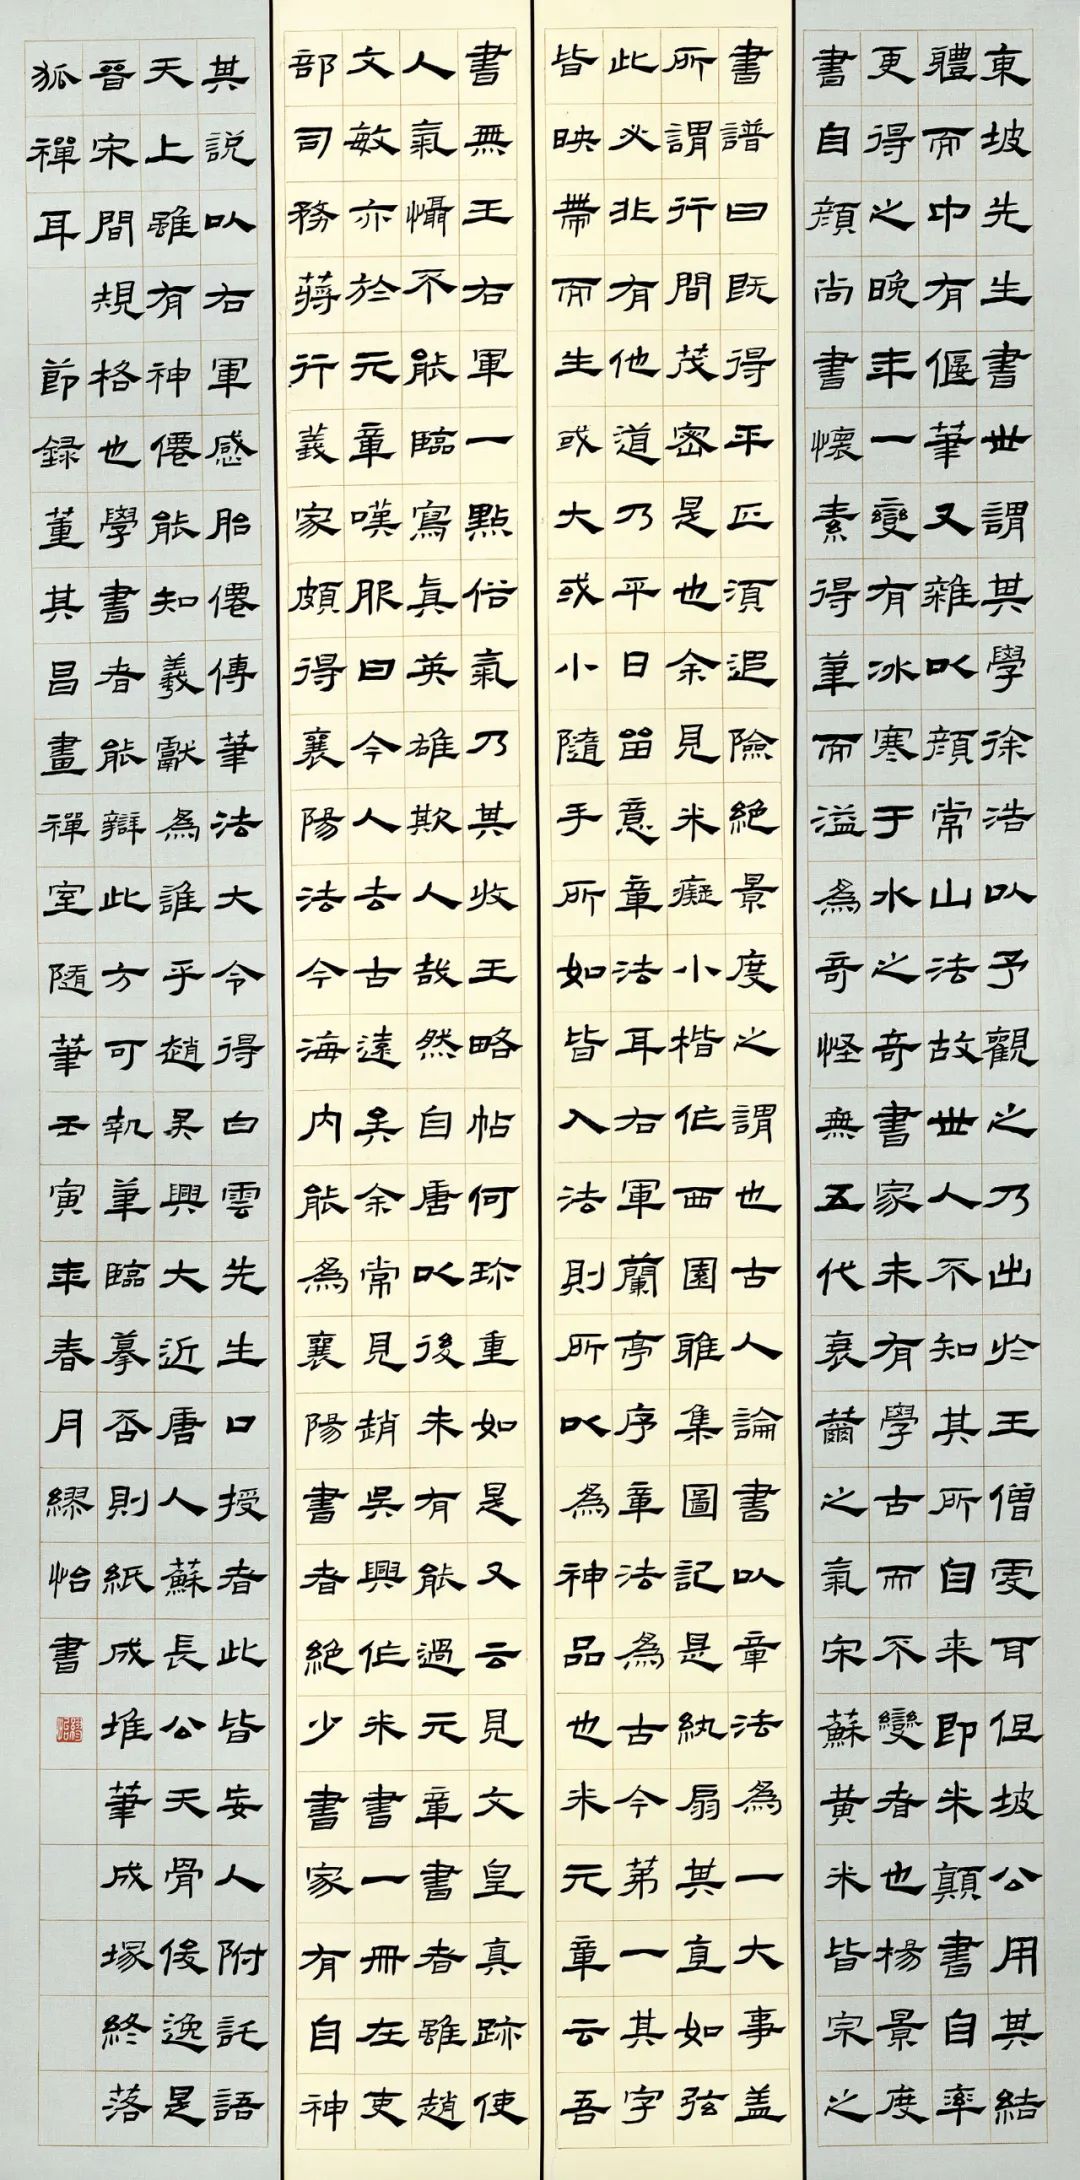 東坡先生書世謂其學徐浩以予觀之乃出於王僧虔耳但坡公用其結
體而中有偃筆又雜以顔常山法故世人不知其所自来即米顛書自率
更得之晚年一變有冰寒于水之奇書家未有學古而不變者也楊景度
書自顔尚書懷素得筆而溢為奇怪無五代衰薾之氣宋蘇黄米皆宗之
書譜曰既得平正須追險絕景度之謂也古人論書以章法為一大事盖
所謂行間茂密是也余見米癡小楷作西園雅集圖記是紈扇其直如弦
此必非有他道乃平日留意章法耳右軍蘭亭序章法為古今第一其字
皆映帶而生或大或小隨手所如皆入法則所以為神品也米元章云吾
書無王右軍一點俗氣乃其收王略帖何珍重如是又云見文皇真跡使
人氣懾不能臨寫真英雄欺人哉然自唐以後未有能過元章書者雖趙
文敏亦於元章嘆服曰今人去古遠矣余常見趙吳興作米書一冊在吏
部司務蔣行義家頗得襄陽法今海内能為襄陽書者絕少書家有自神
其說以右軍感胎僊傳筆法大令得白雲先生口授者此皆妄人附託語
天上雖有神僊能知羲獻為誰乎趙吳興大近唐人蘇長公天骨俊逸是
晉宋間規格也學書者能辯此方可執筆臨摹否則紙成堆筆成塚終落
狐禪耳 節録董其昌畫禪室隨筆壬寅年春月繆怡書
繆怡